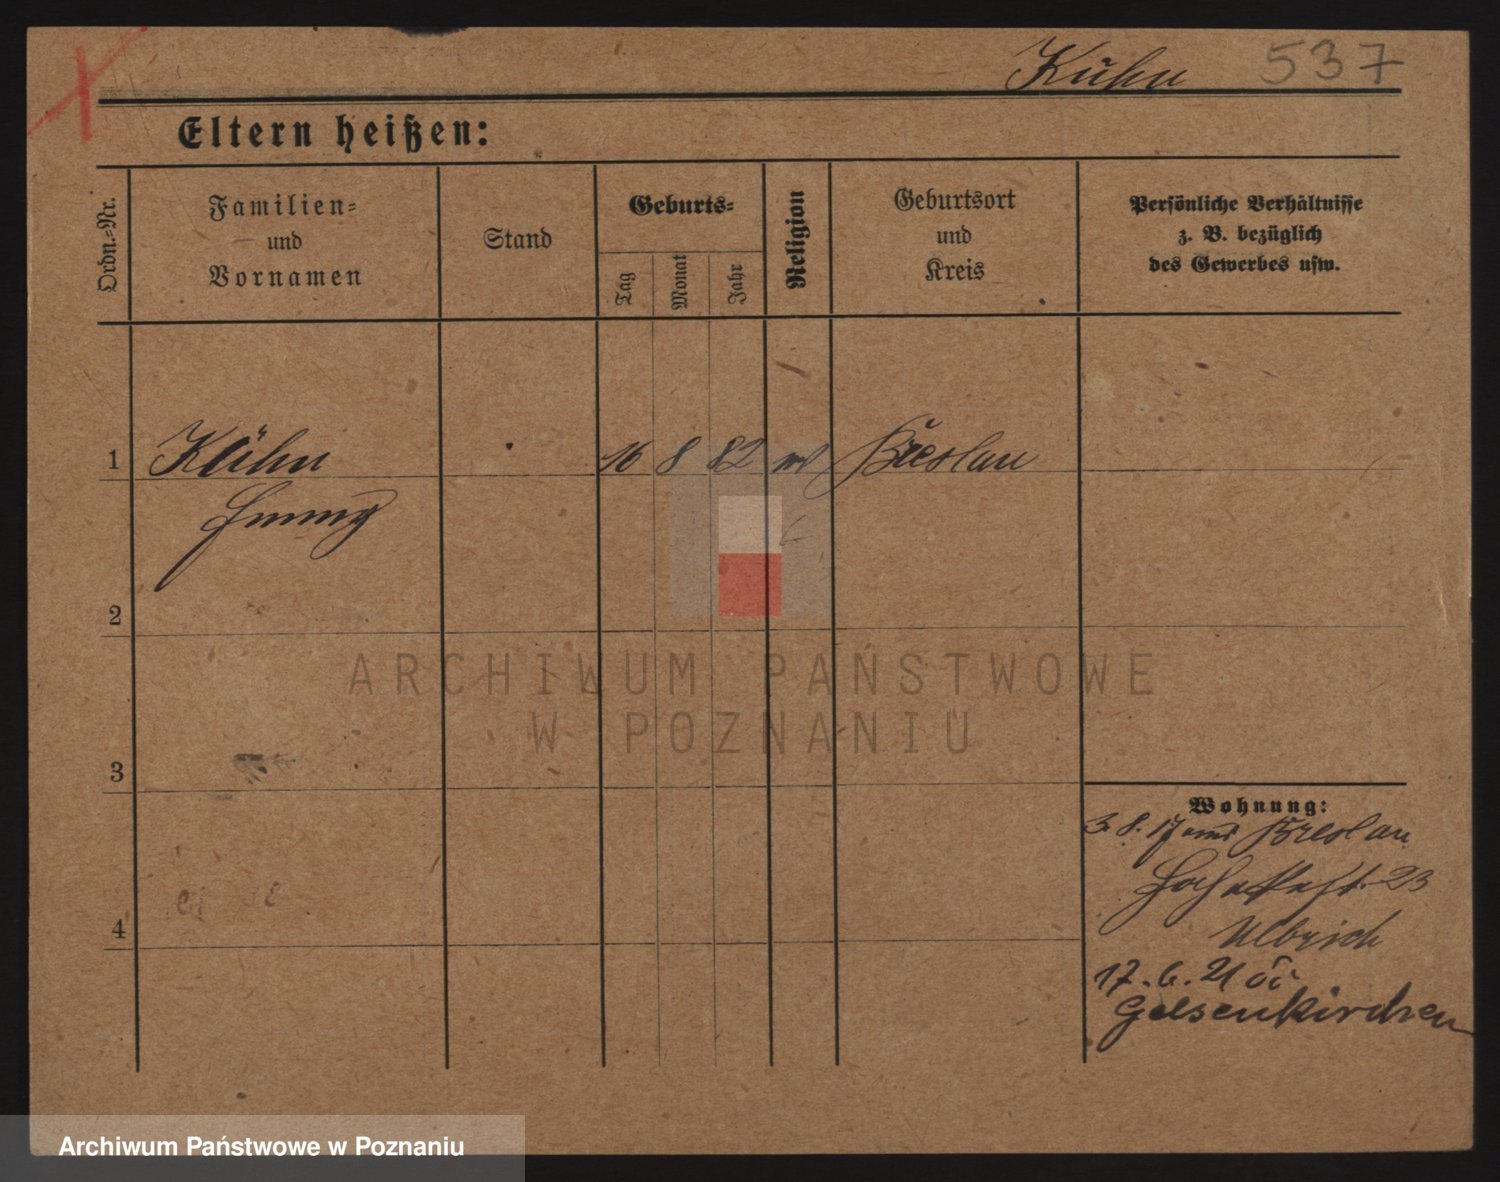 Kühn 537
Eltern heißen:
Ordn.=Nr.
Familien=
und
Vornamen
Stand
Geburts=
Tag
Monat
Jahr
Religion
Geburtsort
und
Kreis
Persönliche Verhältnisse
z. B. bezüglich
des Gewerbes usw.
1 Kühn 16 8 82 Breslau
2
3
4
Wohnung:
3. 8. 17 Breslau
23
Ulbrich
17. 6. 21
Gelsenkirchen
ARCHIWUM PAŃSTWOWE
W POZNANIU
Archiwum Państwowe w Poznaniu